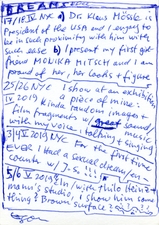 DREAMS
17/18 IV NYC a) Dr. Klaus Mösle is
President of the USA and I ought to
be in such proximity with him with
such ease b) I present my first girl
friend MONIKA HITSCH and I am
proud of her, her looks + figure
25/26 NYC I show at an exhibition
IV 2019 a piece of mine:
kinda random images +
film fragments w/ sound/
with my voice, mothing +
3/4 V 2019 NYC For the first time
EVER I had a sexual dream/en-
counter w/ J.S. !!!
5/6 V 2019 In/with Thilo Heinz-
mann's studio, I show him some
thing? Brown surface?